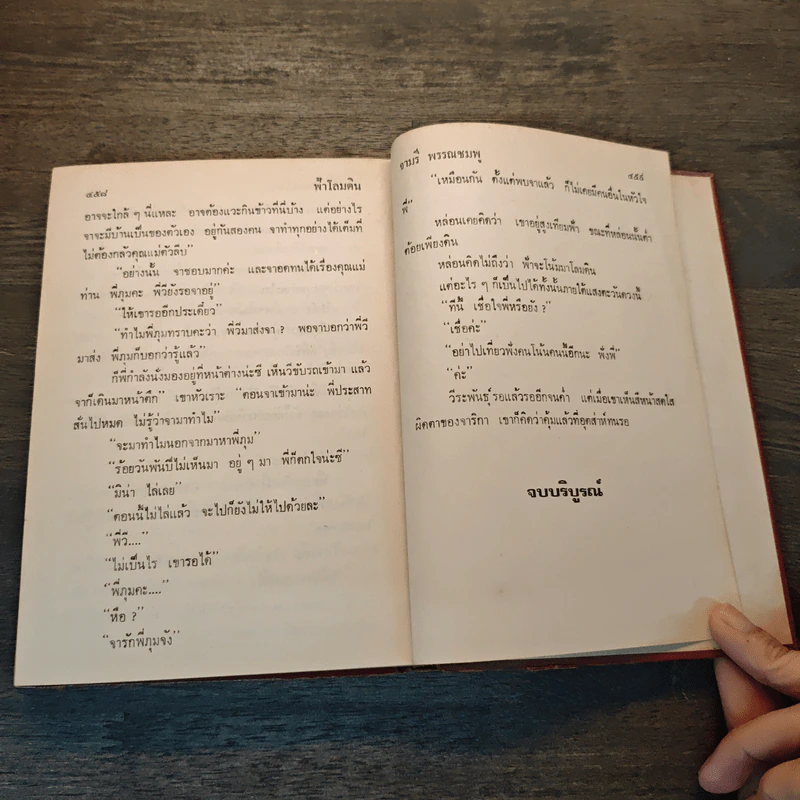 ๔๕๘ ฟ้าโลมดิน
อาจจะใกล้ ๆ นี่แหละ อาจต้องแวะกินข้าวที่นี่บ้าง แต่อย่างไร
จาจะมีบ้านเป็นของตัวเอง อยู่กันสองคน จาทำทุกอย่างได้เต็มที่
ไม่ต้องกลัวคุณแม่ตัวลีบ”
“อย่างนั้น จาชอบมากค่ะ และจาอดทนได้เรื่องคุณแม่
ท่าน พี่ภุมคะ พี่วียังรอจาอยู่”
“ให้เขารออีกประเดี๋ยว”
“ทำไมพี่ภุมทราบคะว่า พี่วีมาส่งจา ? พอจาบอกว่าพี่วี
มาส่ง พี่ภุมก็บอกว่ารู้แล้ว”
ก็พี่กำลังนั่งมองอยู่ที่หน้าต่างน่ะซี เห็นวีขับรถเข้ามา แล้ว
จาก็เดินมาหน้าตึก” เขาหัวเราะ “ตอนจาเข้ามาน่ะ พี่ประสาท
สั่นไปหมด ไม่รู้ว่าจามาทำไม”
“จะมาทำไมนอกจากมาหาพี่ภุม”
“ร้อยวันพันปีไม่เห็นมา อยู่ ๆ มา พี่ก็ตกใจน่ะซี”
“มิน่า ไล่เลย”
“ตอนนี้ไม่ไล่แล้ว จะไปก็ยังไม่ให้ไปด้วยละ”
“พี่วี....”
“ไม่เป็นไร เขารอได้”
“พี่ภุมคะ....”
“หือ ?”
“จารักพี่ภุมจัง”
จามรี พรรณชมพู ๔๕๙
“เหมือนกัน ตั้งแต่พบจาแล้ว ก็ไม่เคยมีคนอื่นในหัวใจ
พี่”
หล่อนเคยคิดว่า เขาอยู่สูงเทียมฟ้า ขณะที่หล่อนนั้นต่ำ
ต้อยเพียงดิน
หล่อนคิดไม่ถึงว่า ฟ้าจะโน้มมาโลมดิน
แต่อะไร ๆ ก็เป็นไปได้ทั้งนั้นภายใต้แสงตะวันดวงนี้
“ทีนี้ เชื่อใจพี่หรือยัง ?”
“เชื่อค่ะ”
“อย่าไปเที่ยวฟังคนโน้นคนนี้อีกนะ ฟังพี่”
“ค่ะ”
วีระพันธุ์ รอแล้วรออีกจนค่ำ แต่เมื่อเขาเห็นสีหน้าสดใส
ผิดตาของจาริกา เขาก็คิดว่าคุ้มแล้วที่อุตส่าห์ทนรอ
จบบริบูรณ์